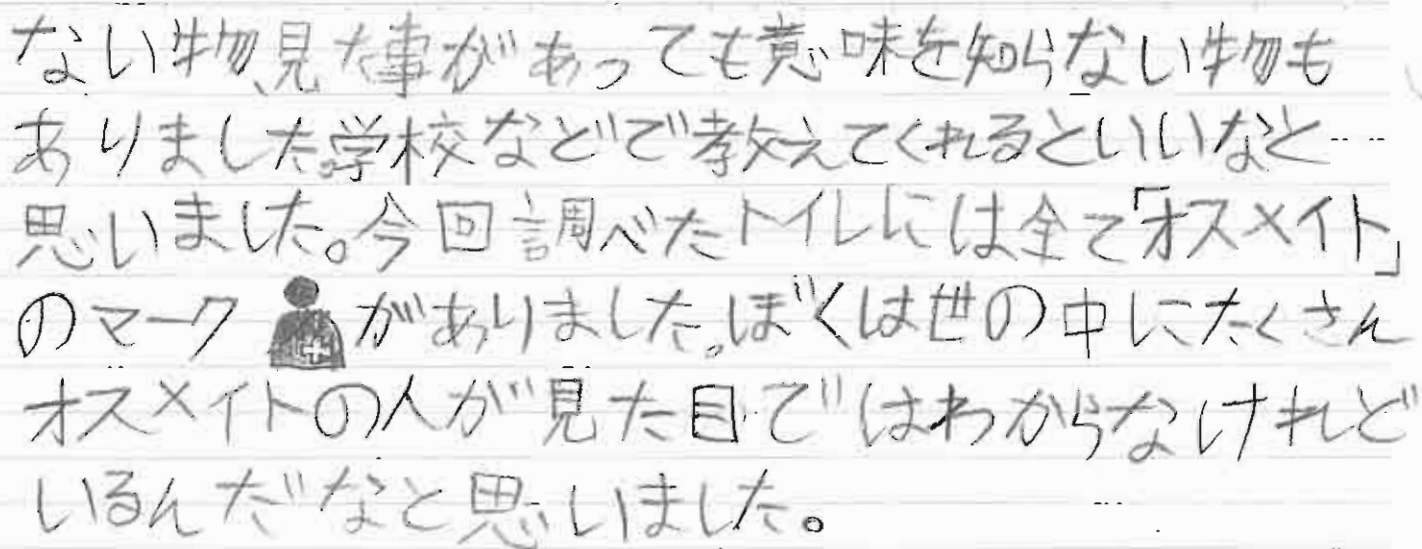 ない物、見た事があっても意味を知らない物も
ありました。学校などで教えてくれるといいなと
思いました。今回調べたトイレには全て「オスメイト」
のマークがありました。ぼくは世の中にたくさん
オスメイトの人が見た目ではわからなけれど
いるんだなと思いました。